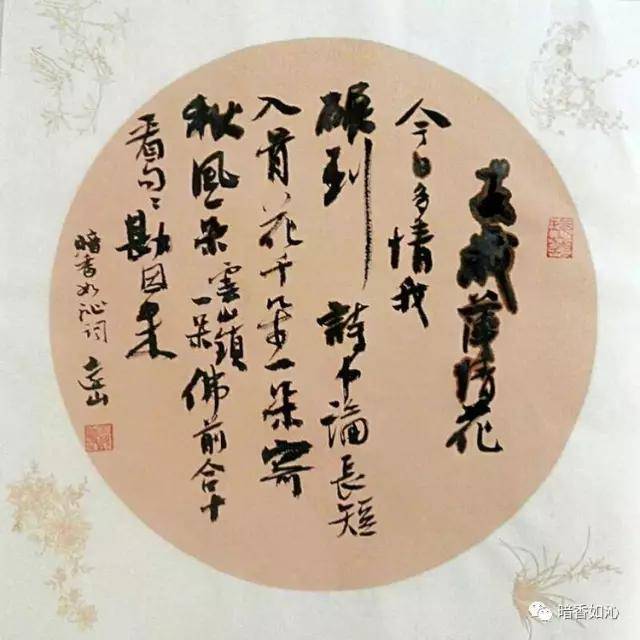 去歲薄情花
今日多情我
碾到詩中論長短
入骨花千朵一朵寄
秋風一朵雲山鎖一朵佛前合十
看句々勘因果
暗香如沁詞 遠山
暗香如沁